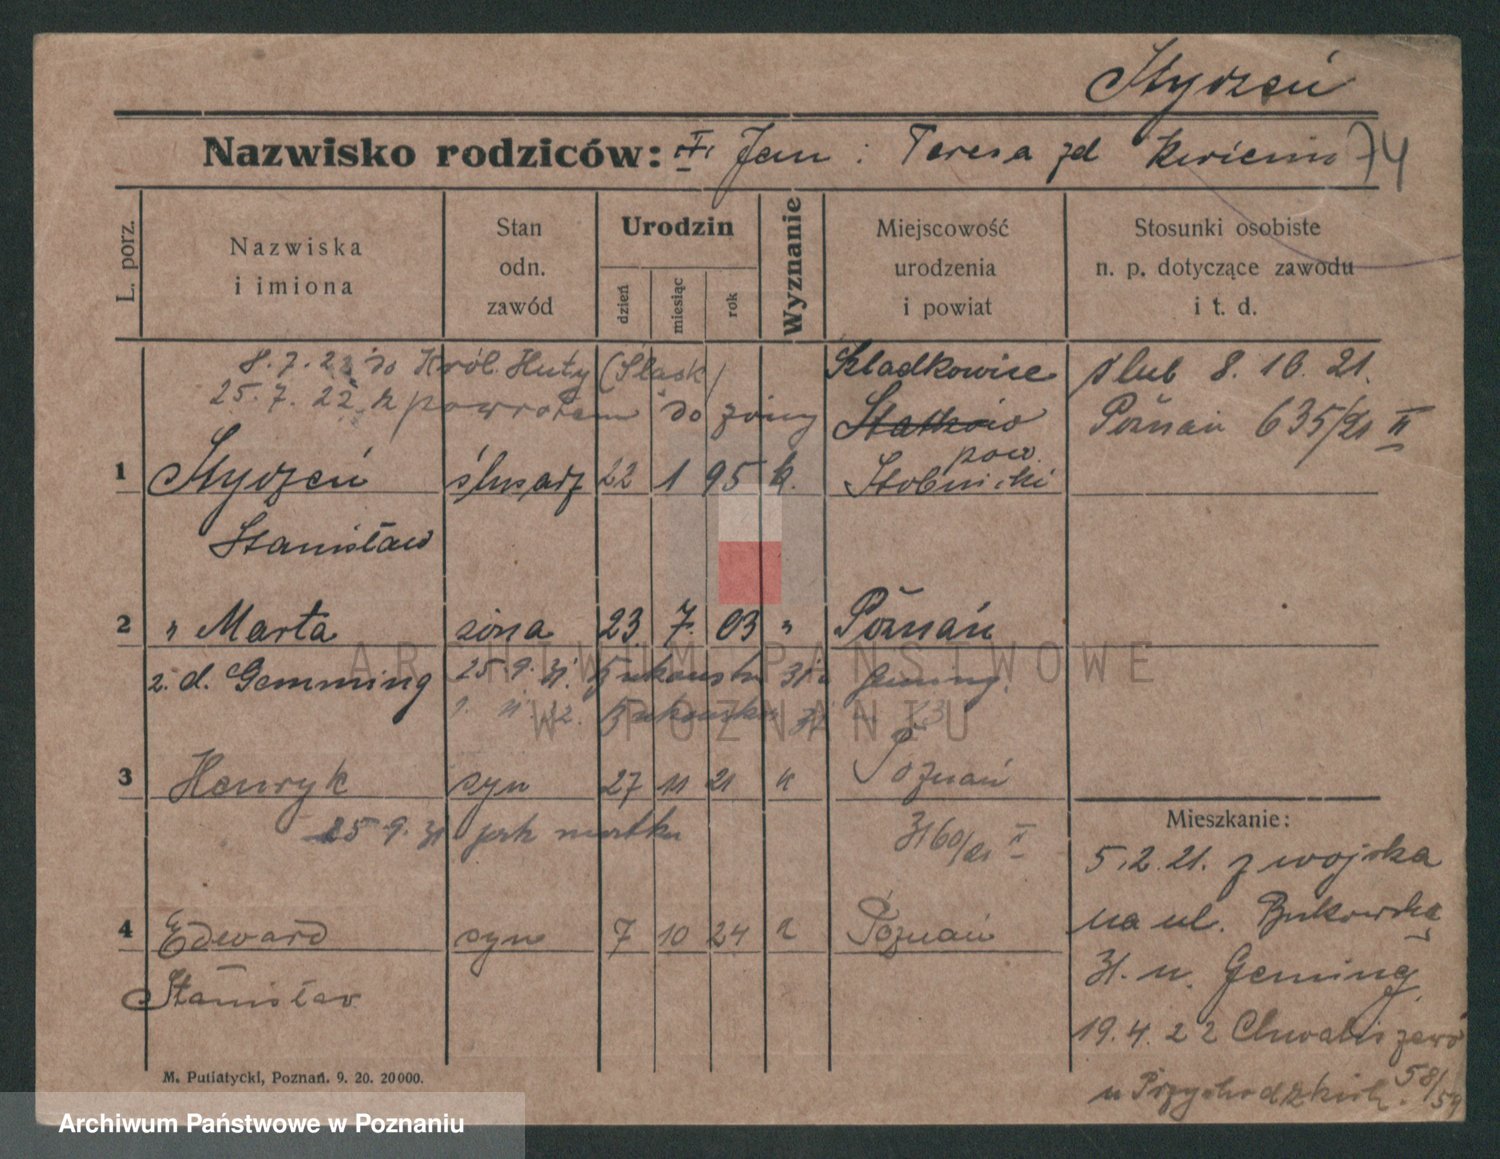 Styczeń
Nazwisko rodziców: Jan : Teresa zd Kwiecin 74
L. porz.
Nazwiska
i imiona
Stan
odn.
zawód
Urodzin
dzień
miesiąc
rok
Wyznanie
Miejscowość
urodzenia
i powiat
Stosunki osobiste
n. p. dotyczące zawodu
i t. d.
8. 7. 22 do Król. Huty (Śląsk)
25. 7. 22 z powrotem do żony
Szladkowice
Statków
pow.
Stobnicki
ślub 8. 10. 21.
Poznań 635/21 II
1 Styczeń ślusarz 22 1 95 k.
Stanisław
2 " Marta żona 23. 7. 03 " Poznań
z. d. Gemming 25. 9. 31. Bukowska 31 u Geming.
Bukowska
3 Henryk syn 27 11 21 k Poznań
25 9. 31 jak matka 3160/21 II
4 Edward syn 7 10 24 k Poznań
Stanisław
Mieszkanie:
5. 2. 21. z wojska
na ul. Bukowską
31. u. Geming.
19. 4. 22 Chwaliszewo
u Przychodzkich. 58/59
M. Putiatycki, Poznań. 9. 20. 20000.
ARCHIWUM PAŃSTWOWE
W POZNANIU
Archiwum Państwowe w Poznaniu